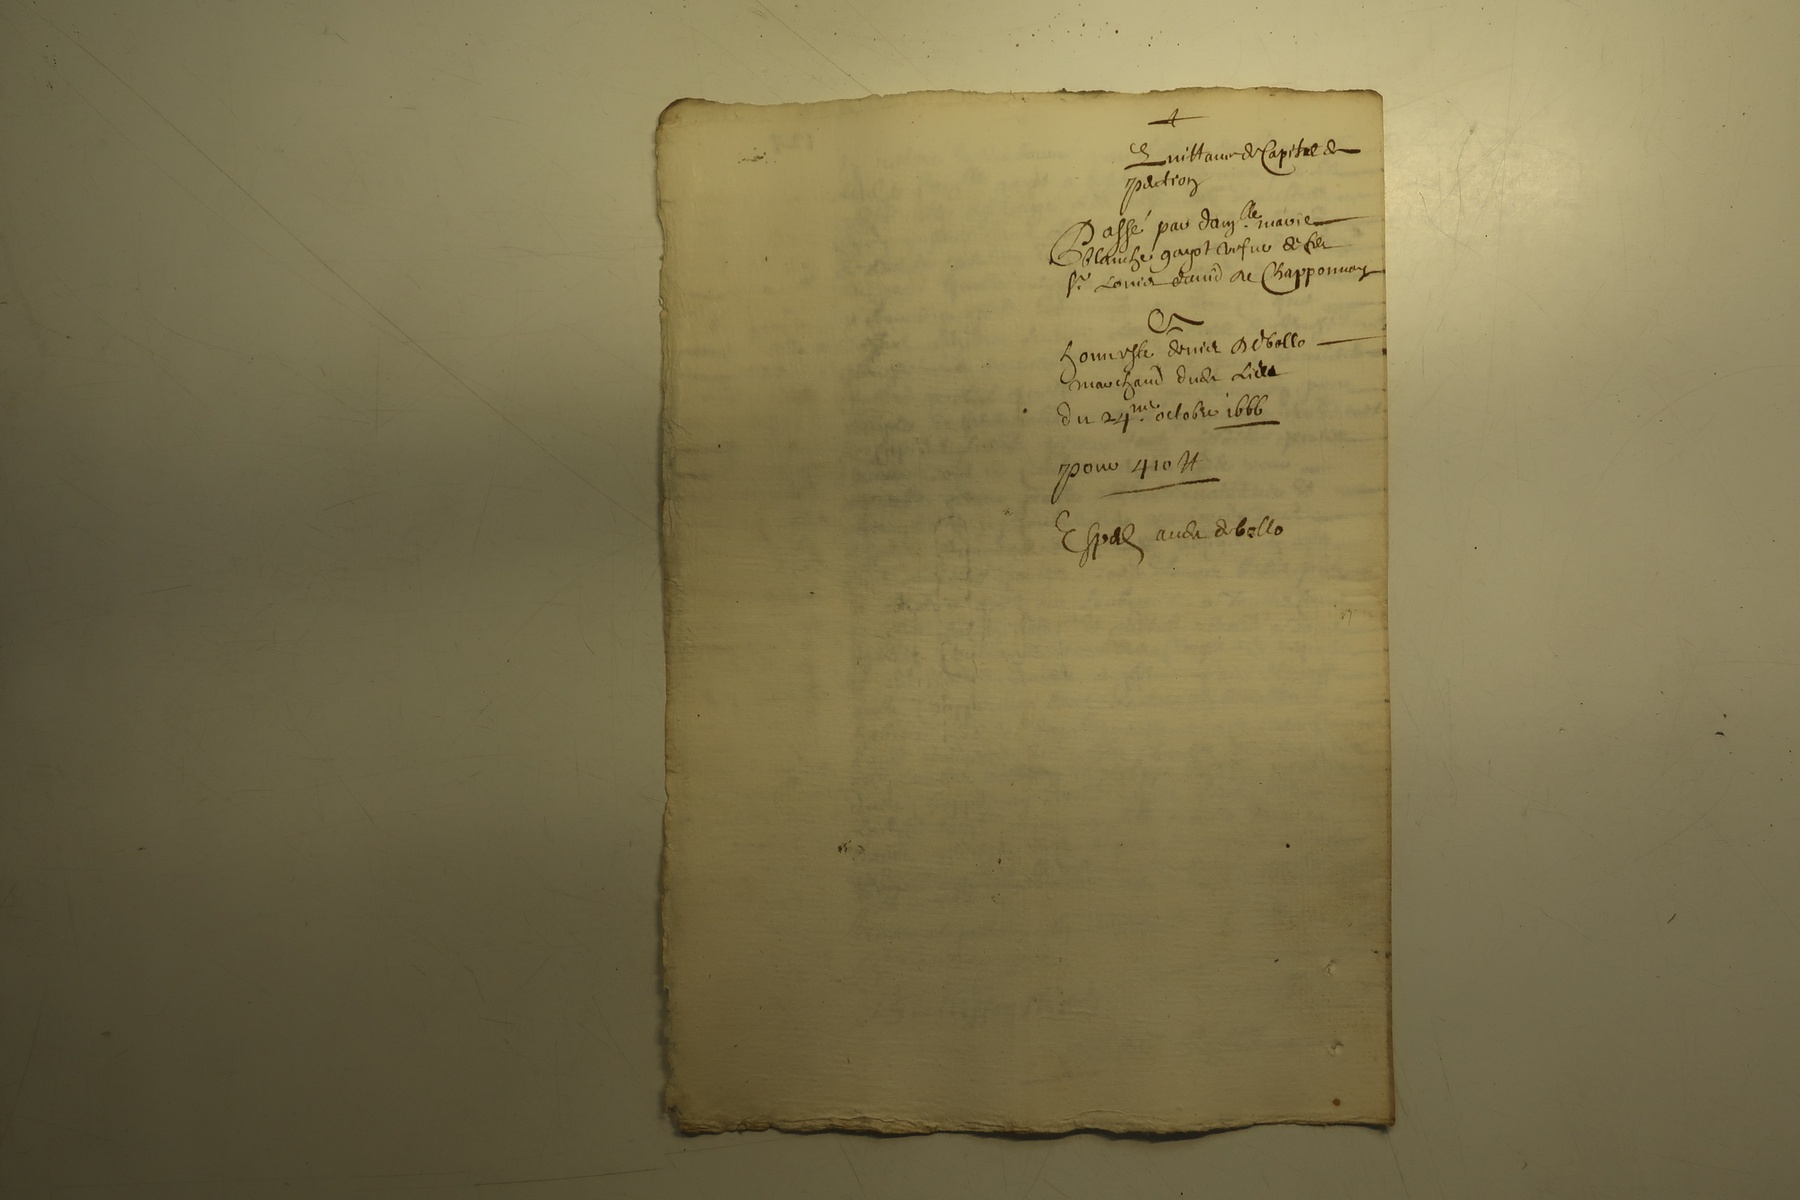 Quittance de Capital de
paction
Passé par dam.lle marie
blanche gayot vefue de feu
sr. Louis dauid de Chapponnay
A
honneste denis debollo
marchand dudit Lieu
du 24.me octobre 1666
pour 410 ₶
Exped audit debollo